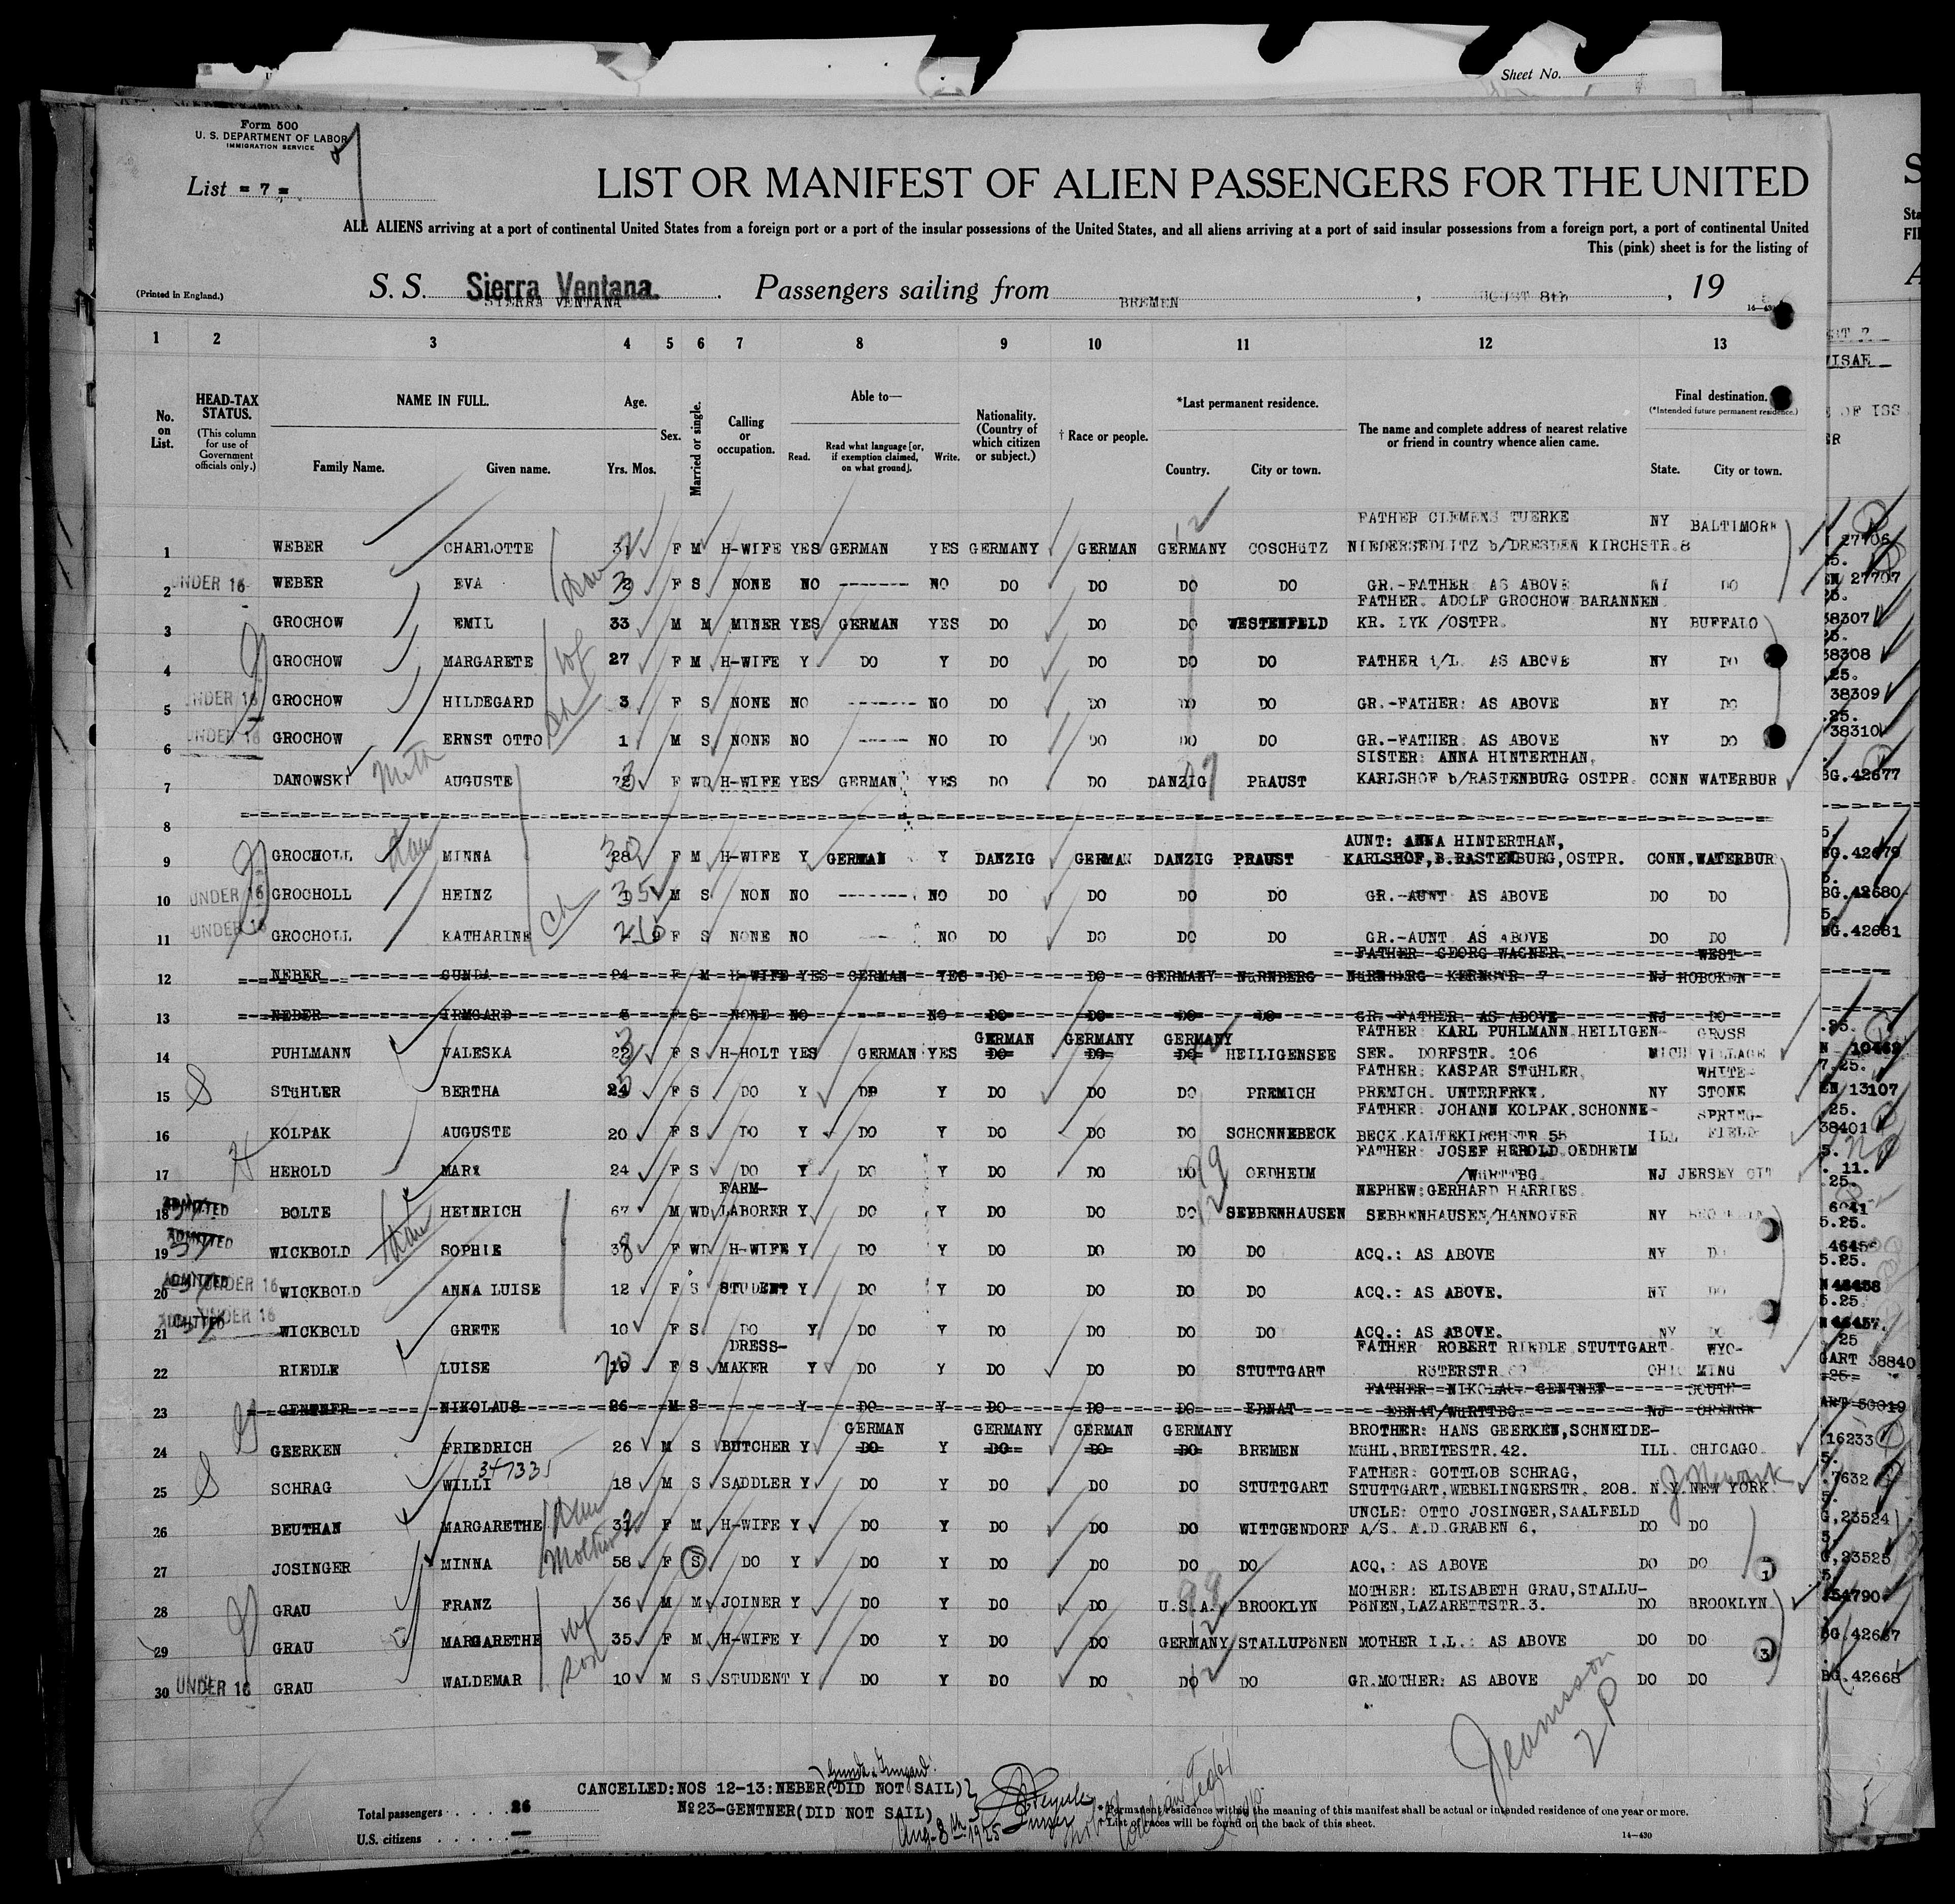 Sheet No.
Form 500
U. S. DEPARTMENT OF LABOR
IMMIGRATION SERVICE
List = 7 =
LIST OR MANIFEST OF ALIEN PASSENGERS FOR THE UNITED
ALL ALIENS arriving at a port of continental United States from a foreign port or a port of the insular possessions of the United States, and all aliens arriving at a port of said insular possessions from a foreign port, a port of continental United
This (pink) sheet is for the listing of
(Printed in England.)
S. S. Sierra Ventana. Passengers sailing from BREMEN, AUGUST 8th, 19
SIERRA VENTANA
1 2 3 4 5 6 7 8 9 10 11 12 13
No. on List.
HEAD-TAX STATUS.
(This column for use of Government officials only.)
NAME IN FULL.
Family Name. Given name.
Age.
Yrs. Mos.
Sex.
Married or single.
Calling or occupation.
Able to—
Read. Read what language [or, if exemption claimed, on what ground]. Write.
Nationality. (Country of which citizen or subject.)
† Race or people.
*Last permanent residence.
Country. City or town.
The name and complete address of nearest relative or friend in country whence alien came.
Final destination.
(*Intended future permanent residence.)
State. City or town.
FATHER CLEMENS TUERKE NY BALTIMORE
1 WEBER CHARLOTTE F M H-WIFE YES GERMAN YES GERMANY GERMAN GERMANY COSCHüTZ NIEDERSEDLITZ b/DRESDEN KIRCHSTR.8 27706
2 UNDER 16 WEBER EVA Dau F S NONE NO ------- NO DO DO DO DO GR.-FATHER AS ABOVE NY DO 27707
FATHER. ADOLF GROCHOW BARANNEN
3 GROCHOW EMIL 33 M M MINER YES GERMAN YES DO DO DO WESTENFELD KR. LYK /OSTPR. NY BUFFALO 38307
4 GROCHOW MARGARETE wf 27 F M H-WIFE Y DO Y DO DO DO DO FATHER i/L AS ABOVE NY DO 38308
5 UNDER 16 GROCHOW HILDEGARD ch 3 F S NONE NO ------- NO DO DO DO DO GR.-FATHER: AS ABOVE NY DO 38309
6 UNDER 16 GROCHOW ERNST OTTO 1 M S NONE NO ------ NO DO DO DO DO GR.-FATHER AS ABOVE NY DO 38310
SISTER: ANNA HINTERTHAN,
7 DANOWSKI Moth AUGUSTE F WD H-WIFE YES GERMAN YES DO DO DANZIG PRAUST KARLSHOF b/RASTENBURG OSTPR. CONN WATERBUR BG.42677
8
AUNT: ANNA HINTERTHAN,
9 GROCHOLL Dau MINNA 28 F M H-WIFE Y GERMAN Y DANZIG GERMAN DANZIG PRAUST KARLSHOF,B.RASTENBURG,OSTPR. CONN.WATERBUR BG.42679
10 UNDER 16 GROCHOLL HEINZ M S NON NO ------- NO DO DO DO DO GR.-AUNT AS ABOVE DO DO BG.42680
11 UNDER 16 GROCHOLL KATHARINE ch F S NONE NO --- NO DO DO DO DO GR.-AUNT AS ABOVE DO DO BG.42681
FATHER GEORG WAGNER WEST
12 NEBER GUNDA 24 F M H-WIFE YES GERMAN YES DO DO GERMANY NüRNBERG NüRNBERG KERNSTR 7 NJ HOBOKEN
13 NEBER IRMGARD F S NONE NO NO DO DO DO GR. FATHER. AS ABOVE NJ DO
GERMAN GERMANY GERMANY FATHER KARL PUHLMANN HEILIGEN- GROSS
14 PUHLMANN VALESKA 22 F S H-HOLT YES GERMAN YES DO DO DO HEILIGENSEE SEE. DORFSTR. 106 MICH VILLAGE 10462
FATHER: KASPAR STüHLER WHITE-
15 STüHLER BERTHA 24 F S DO Y DO Y DO DO DO PREMICH PREMICH. UNTERFRKN. NY STONE 13107
FATHER: JOHANN KOLPAK.SCHONNE- SPRING-
16 KOLPAK AUGUSTE 20 F S DO Y DO Y DO DO DO SCHONNEBECK BECK.KALTEKIRCHSTR 55 ILL FIELD 38401
FATHER: JOSEF HEROLD OEDHEIM
17 HEROLD MARY 24 F S DO Y DO Y DO DO DO OEDHEIM /WüRTTBG. NJ JERSEY CIT
FARM- NEPHEW:GERHARD HARRIES.
18 ADMITTED BOLTE HEINRICH 67 M WD LABORER Y DO Y DO DO DO SEEBENHAUSEN SEBBENHAUSEN/HANNOVER NY BROOKLYN 6041
19 ADMITTED WICKBOLD Dau SOPHIE 38 F WD H-WIFE Y DO Y DO DO DO DO ACQ.: AS ABOVE NY DO 46456
20 ADMITTED UNDER 16 WICKBOLD ANNA LUISE 12 F S STUDENT Y DO Y DO DO DO DO ACQ.: AS ABOVE. NY DO 46458
21 ADMITTED UNDER 16 WICKBOLD GRETE 10 F S DO Y DO Y DO DO DO DO ACQ.: AS ABOVE. NY DO 46457.
DRESS- FATHER ROBERT RIEDLE STUTTGART WYO-
22 RIEDLE LUISE 19 F S MAKER Y DO Y DO DO DO STUTTGART RöTERSTR. OHIO MING GART 38840
FATHER NIKOLAUS GENTNER SOUTH
23 GENTNER NIKOLAUS 26 M S Y DO Y DO DO DO EBNAT EBNAT/WüRTTBG. NJ ORANGE ART 50019
GERMAN GERMANY GERMAN GERMANY BROTHER: HANS GEERKEN,SCHNEIDE-
24 GEERKEN FRIEDRICH 26 M S BUTCHER Y DO Y DO DO DO BREMEN MüHL.BREITESTR.42. ILL. CHICAGO. 16233
347335 FATHER: GOTTLOB SCHRAG, J Newark
25 SCHRAG WILLI 18 M S SADDLER Y DO Y DO DO DO STUTTGART STUTTGART,WEBELINGERSTR. 208. N.Y.NEW YORK. 7632
UNCLE: OTTO JOSINGER,SAALFELD
26 BEUTHAN MARGARETHE Dau F M H-WIFE Y DO Y DO DO DO WITTGENDORF A/S. A.D.GRABEN 6, DO DO 23524
27 JOSINGER MINNA Mother 58 F S DO Y DO Y DO DO DO DO ACQ.: AS ABOVE DO DO 1 23525
MOTHER: ELISABETH GRAU,STALLU-
28 GRAU FRANZ 36 M M JOINER Y DO Y DO DO U.S.A. BROOKLYN PöNEN,LAZARETTSTR.3. DO BROOKLYN 254790
29 GRAU MARGARETHE wf 35 F M H-WIFE Y DO Y DO DO GERMANY STALLUPöNEN MOTHER I.L.: AS ABOVE DO DO 3 BG.42667
30 UNDER 16 GRAU WALDEMAR son 10 M S STUDENT Y DO Y DO DO DO DO GR.MOTHER: AS ABOVE DO DO BG.42668
2 P
Gunda & Irmgard
CANCELLED:NOS 12-13:NEBER(DID NOT SAIL)
No23-GENTNER(DID NOT SAIL)
Aug-8th 1925
Purser
Total passengers . . . . . 26
U.S. citizens . . . . . . —
* Permanent residence within the meaning of this manifest shall be actual or intended residence of one year or more.
† List of races will be found on the back of this sheet.
14—430